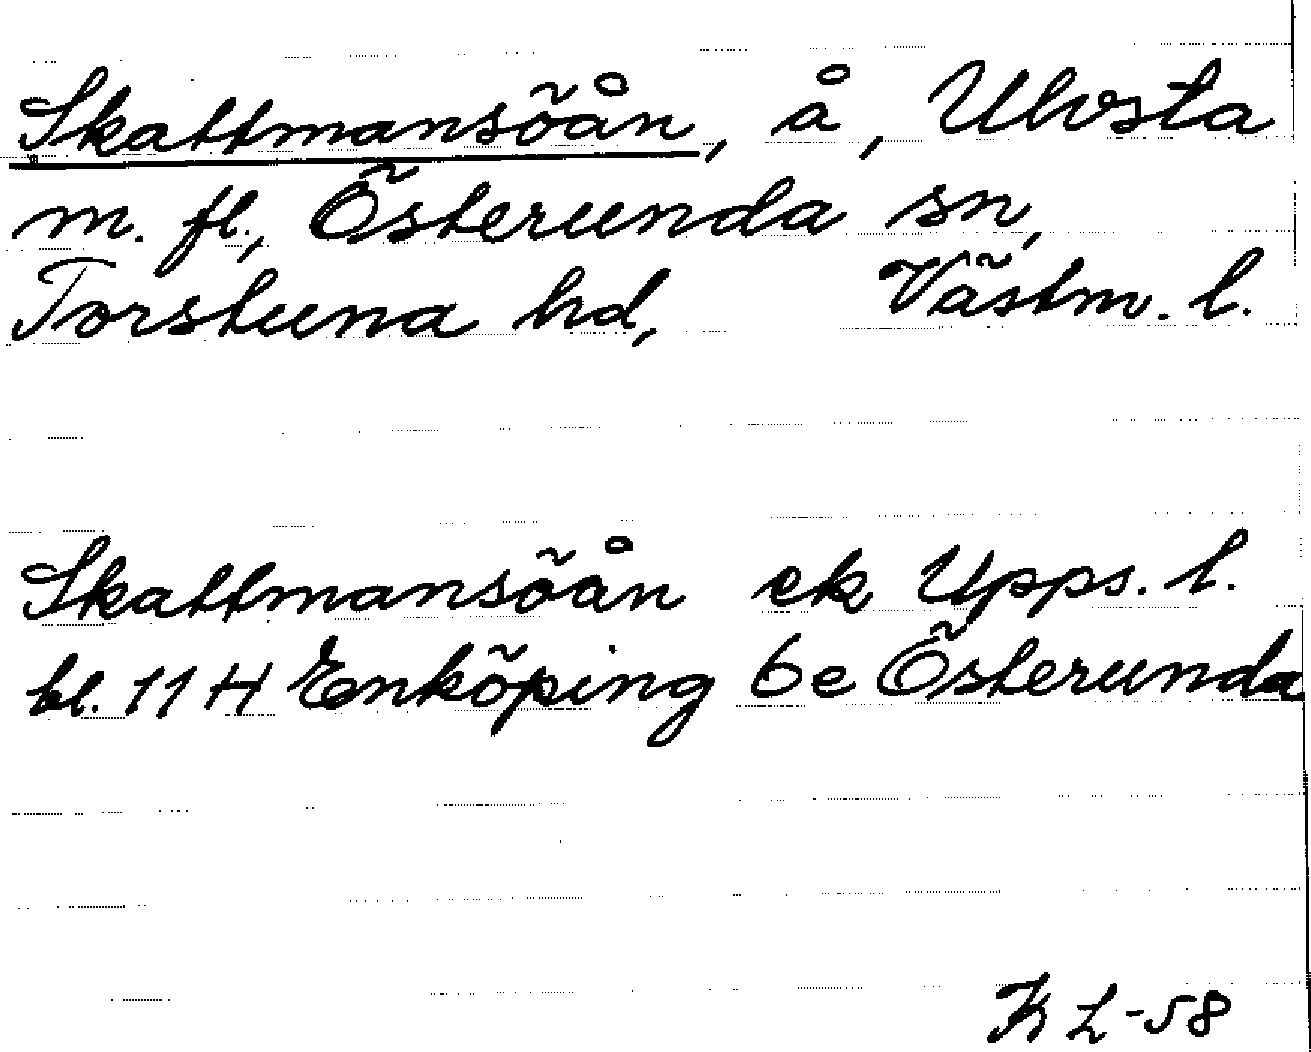 Skattmansöån, å, Ulvsta
m. fl., Österunda sn,
Torstuna hd, Västm. l.
Skattmansöån ek Upps. l.
bl. 11 H Enköping 6e Österunda
K L-58